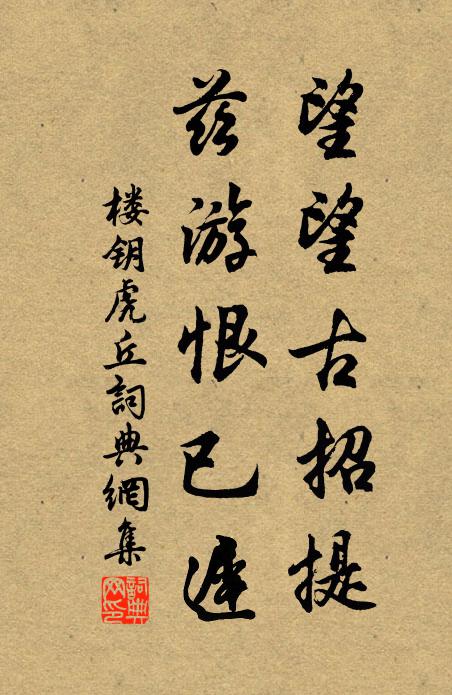 望望古招提
兹游恨已遲
楼钥虎丘詞典網集
詞典网印